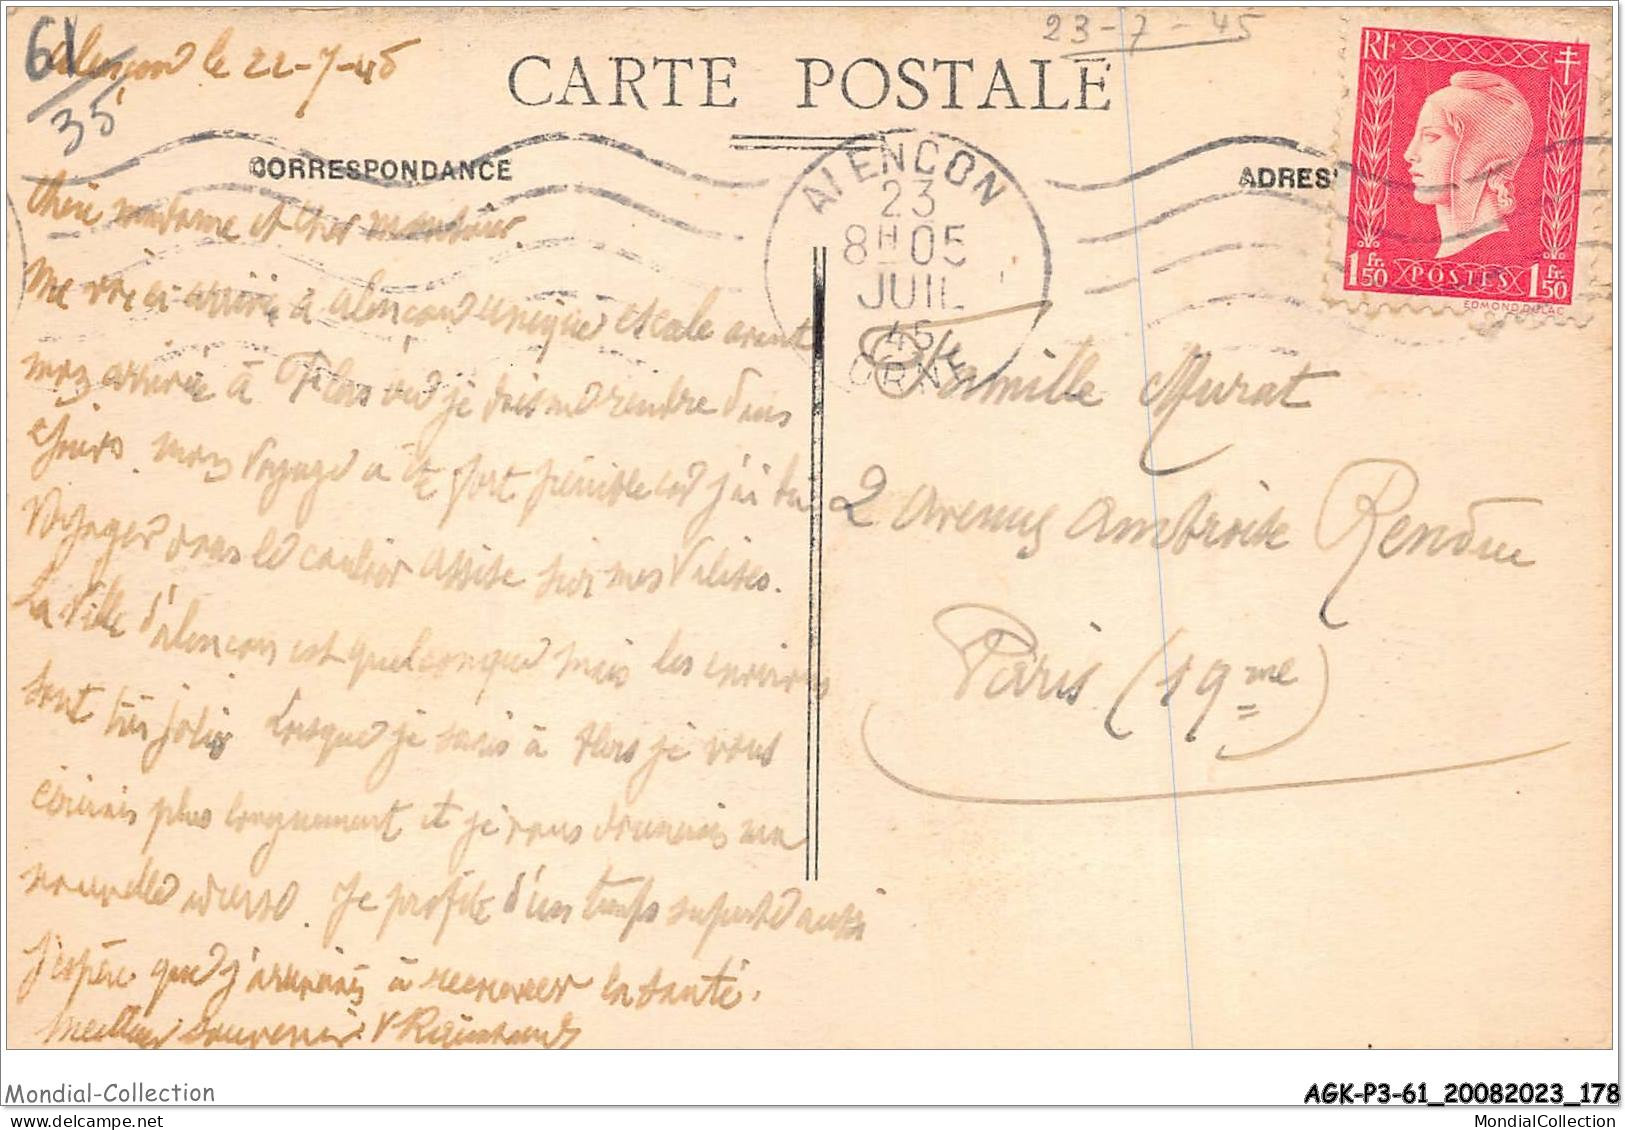 61
35
Alençon le 22-7-45
23-7-45
CARTE POSTALE
CORRESPONDANCE
ADRES
ALENCON
23
8H05
JUIL
45
ORNE
RF
1Fr.50 POSTES 1Fr.50
EDMOND DULAC
Chère madame et cher monsieur
Me voici arrivée à Alençon unique escale avant
mon arrivée à Flers où je dois me rendre dans
jours. mon voyage a été fort pénible car j'ai dû
voyager dans le couloir assise sur mes valises.
La ville d'Alençon est quelconque mais les environs
sont très jolis Lorsque je serais à Flers je vous
écrirais plus longuement et je vous donnerais ma
nouvelle adresse. Je profite d'un temps superbe aussi
j'espère que j'arriverais à recouvrer la santé.
Meilleur souvenir
Camille Murat
2 avenue Ambroise Rendu
Paris (19me)
Mondial-Collection
AGK-P3-61_20082023_178
www.delcampe.net
MondialCollection